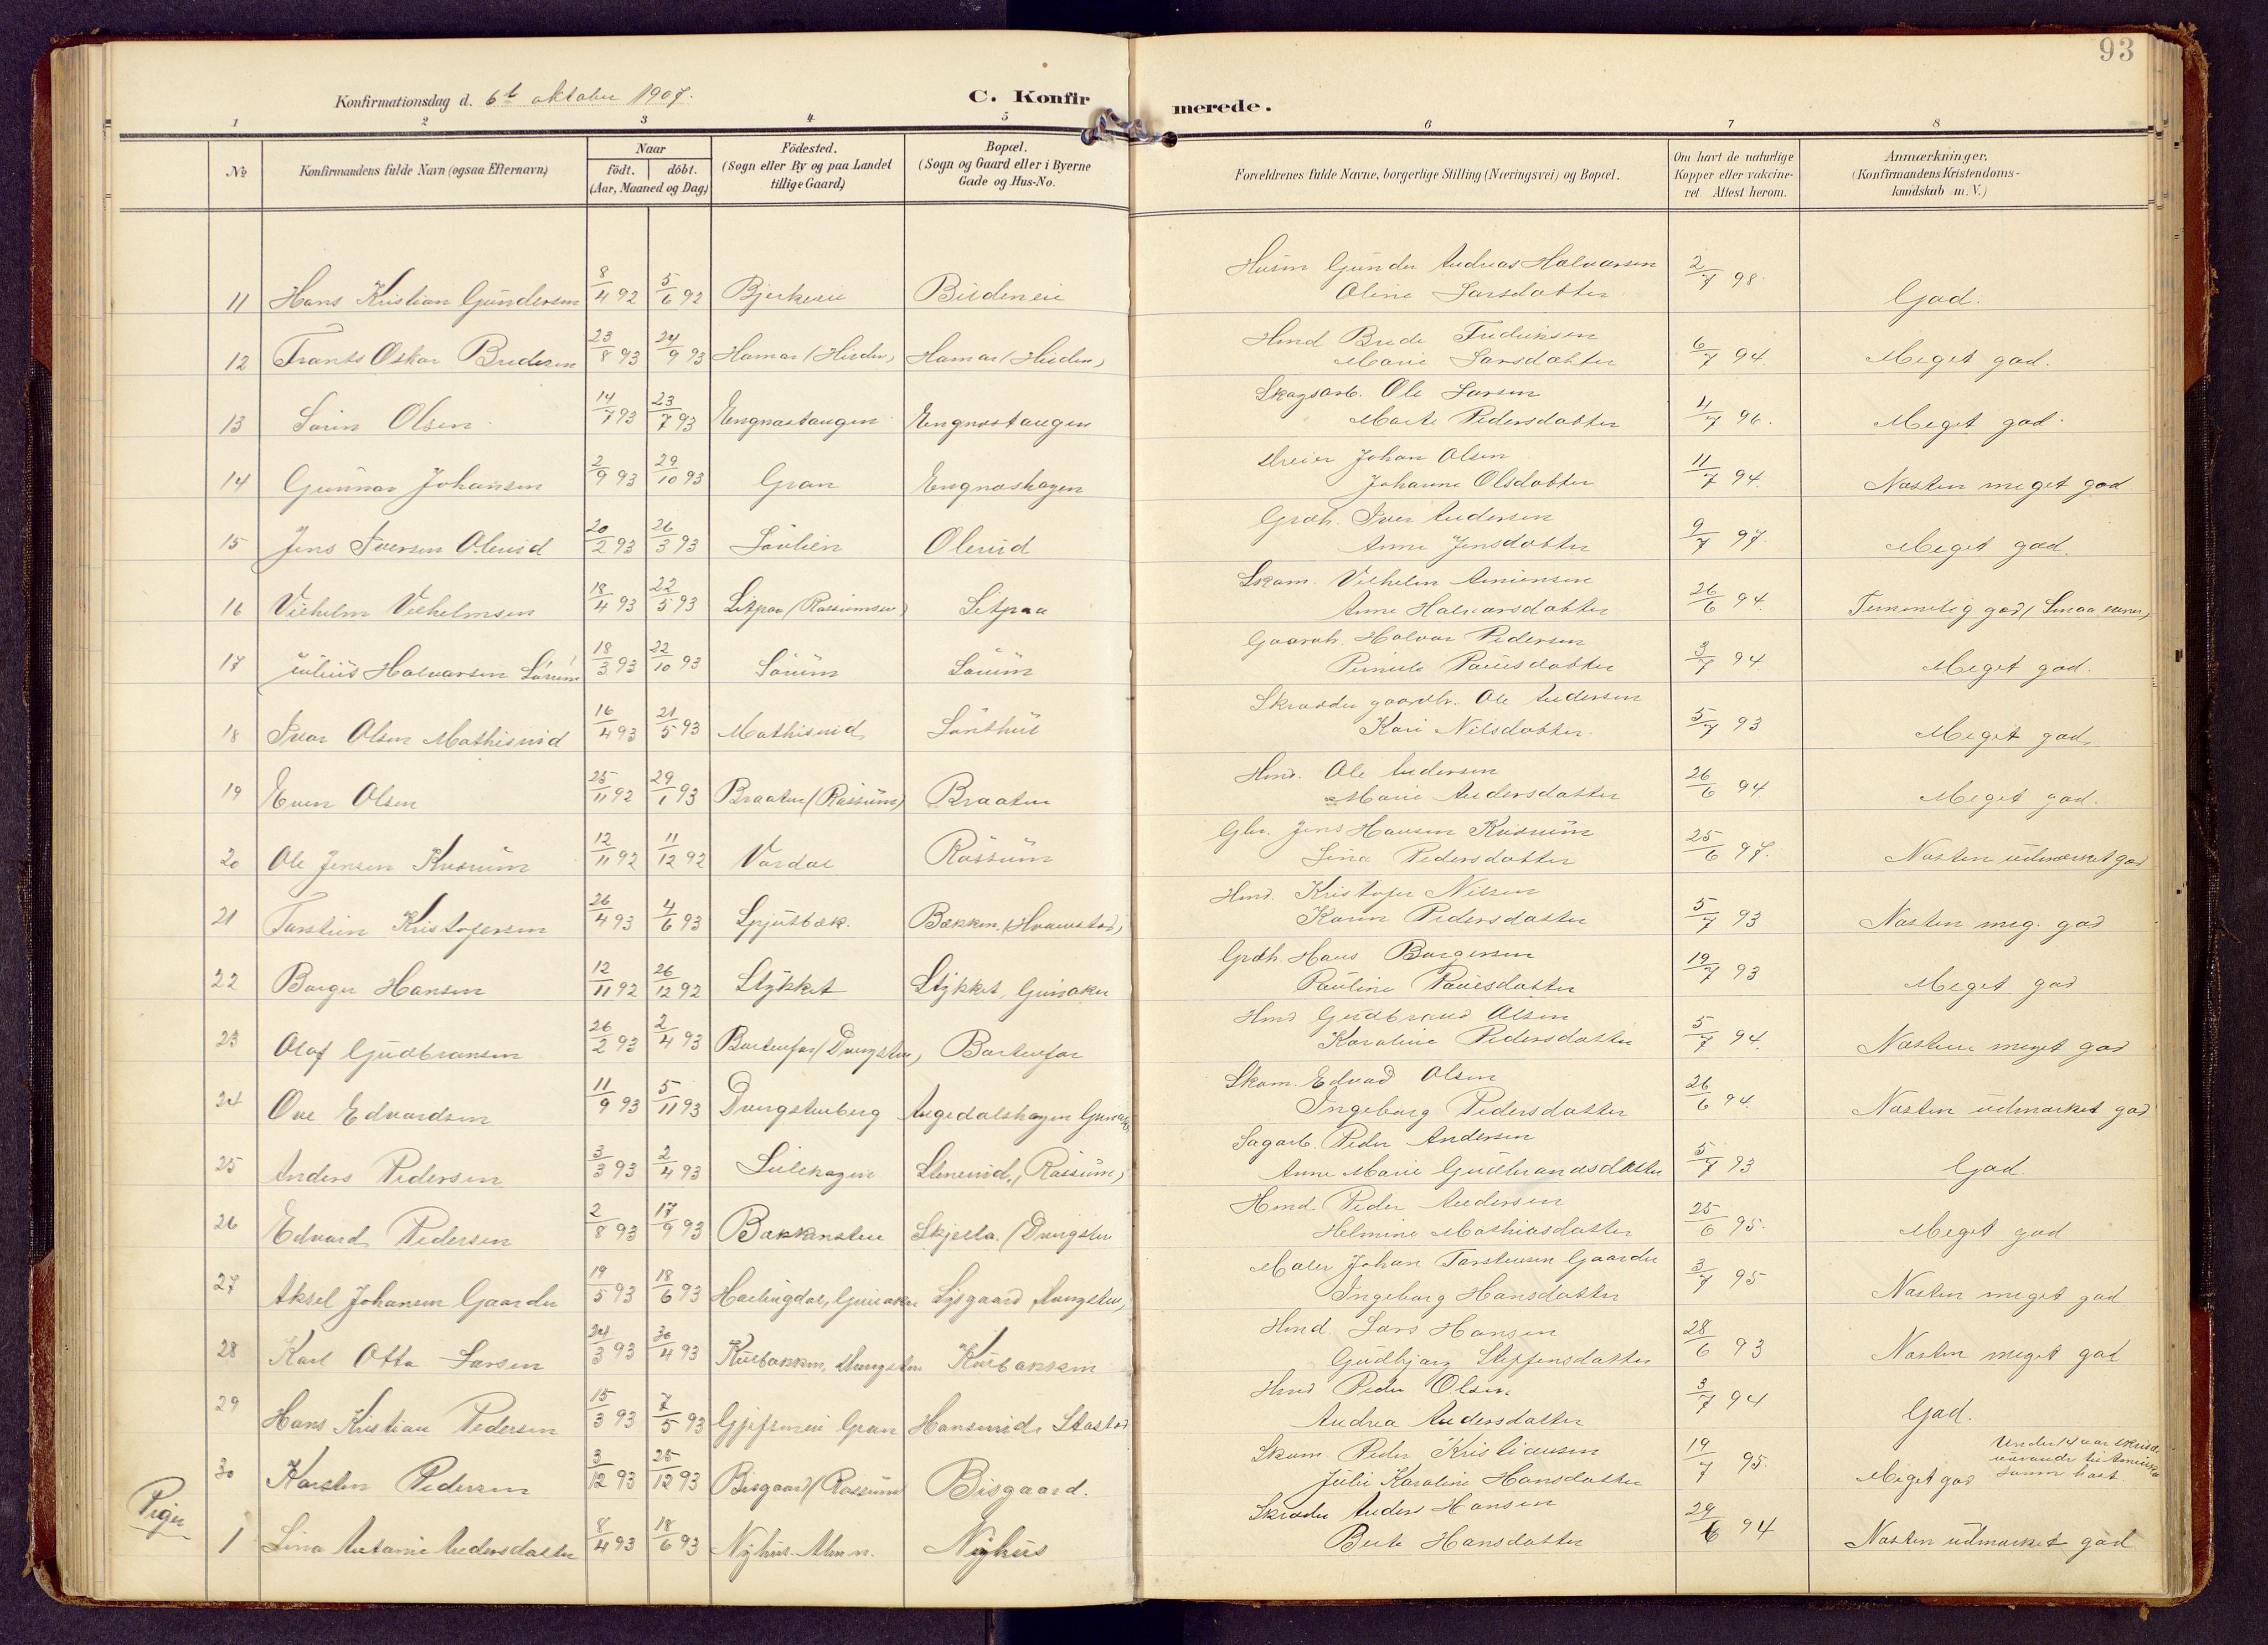 93
Konfirmationsdag d. 6te oktober 1907.
C. Konfirmerede.
1 2 3 4 5 6 7 8
No
Konfirmandens fulde Navn (ogsaa Efternavn)
Naar
födt. döbt.
(Aar, Maaned og Dag)
Födested.
(Sogn eller By og paa Landet
tillige Gaard)
Bopæl.
(Sogn og Gaard eller i Byerne
Gade og Hus-No.
Forældrenes fulde Navne, borgerlige Stilling (Næringsvei) og Bopæl.
Om havt de naturlige
Kopper eller vakcine-
ret. Attest herom.
Anmærkninger.
(Konfirmandens Kristendoms-
kundskab m. V.)
11 Hans Kristian Gundersen 8/4 92 5/6 92 Bjerkeeie Bildeneie Husm Gunder Andreas Halvorsen 2/7 98.
Oline Larsdatter God.
12 Frants Oskar Bredesen 23/8 93 24/9 93 Hamar Hamar Hmd Brede Fredriksen 6/7 94.
Marie Larsdatter Meget god.
13 Sörin Olsen 14/7 93 23/7 93 Engnastangen Engnastangen Skogsarb. Ole Larsen 4/7 96.
Marte Pedersdatter Meget god.
14 Gunnar Johansen 2/9 93 29/10 93 Gran Engnashagen Johan Olsen 11/7 94.
Johanne Olsdatter Næsten meget god
15 Jens Iversen Olerud 20/2 93 26/3 93 Olerud Grdb. Iver Andersen 9/7 97.
Anne Jensdatter Meget god.
16 Vilhelm Vilhelmsen 18/4 93 22/5 93 Sitpaa Sitpaa Skom. Vilhelm 26/6 94.
Anne Halvorsdatter Temmelig god
17 Julius Halvorsen Sörum 18/3 93 22/10 93 Sörum Sörum Gaardb. Halvor Pedersen 3/7 94.
Pernille Paulsdatter Meget god.
18 Ivar Olsen Mathisrud 16/4 93 21/5 93 Mathisrud Skrædder gaardbr. Ole Andersen 5/7 93
Kari Nilsdatter. Meget god.
19 Even Olsen 25/11 92 29/1 93 Braaten (Rossum) Braaten Hmd. Ole Andersen 26/6 94
Marie Andersdatter Meget god.
20 Ole Jensen Knarum 12/11 92 11/12 92 Vardal Rossum Gbr. Jens Hansen Knarum 25/6 97.
Lina Pedersdatter Næsten udmærket god
21 Torstein Kristofersen 26/4 93 4/6 93 Spjutbæk. Bækken, Hmd. Kristofer Nilsen 5/7 93
Karen Pedersdatter Næsten meg. god
22 Borger Hansen 12/11 92 26/12 92 Stykket Stykket, Grinaker Grdb. Hans Borgersen 19/7 93
Pauline Paulsdatter Meget god
23 Olaf Gudbransen 26/2 93 2/4 93 Hmd Gudbrand Olsen 5/7 94.
Karoline Pedersdatter Næsten meget god
24 Ove Edvardsen 11/9 93 5/11 93 Dvergstenberg Skom. Edvard Olsen 26/6 94.
Ingeborg Pedersdatter Næsten udmærket god
25 Anders Pedersen 3/3 93 2/4 93 Lillehagen Stenerud, (Rossum) Sagarb. Peder Andersen 5/7 93
Anne Marie Gudbrandsdatter God.
26 Edvard Pedersen 2/8 93 17/9 93 Skjella. (Dvergsten Hmd. Peder Andersen 25/6 95.
Helmine Mathiasdatter Meget god
27 Aksel Johansen Gaarder 19/5 93 18/6 93 Hallingdal, Grinaker Lysgaard Dvergsten, Maler Johan Torstensen Gaarder 3/7 95
Ingeborg Hansdatter Næsten meget god
28 Karl Otto Larsen 24/3 93 30/4 93 Kulbakken, Dvergsten Kulbakken Hmd. Lars Hansen 28/6 93
Gudbjørg Steffensdatter Næsten meget god
29 Hans Kristian Pedersen 15/3 93 7/5 93 Gran Hansrud Hmd Peder Olsen 3/7 94
Andrea Andersdatter God.
30 Karsten Pedersen 3/12 93 25/12 93 Bisgaard (Rossum) Bisgaard. Skom. Peder Kristiansen 19/7 95.
Julie Karoline Hansdatter Meget god Under 14 aar
Piger
1 Lina Antonie Andersdatter 8/4 93 18/6 93 Nyhus Nyhus Skræder Anders Hansen 29/6 94
Berte Hansdatter Næsten udmærket god